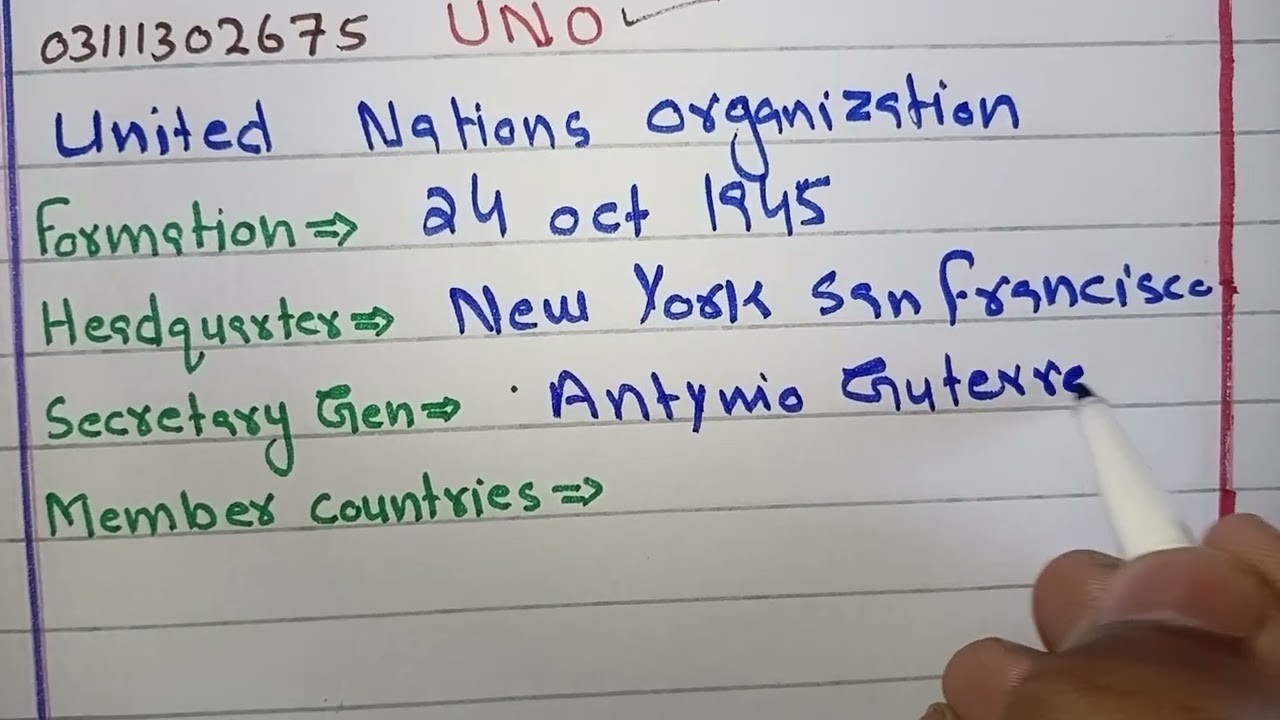 03111302675 UNO
United Nations organization
Formation⇒ 24 oct 1945
Headquarter⇒ New York San Francisco
Secretary Gen⇒ Antynio Guterre
Member countries⇒